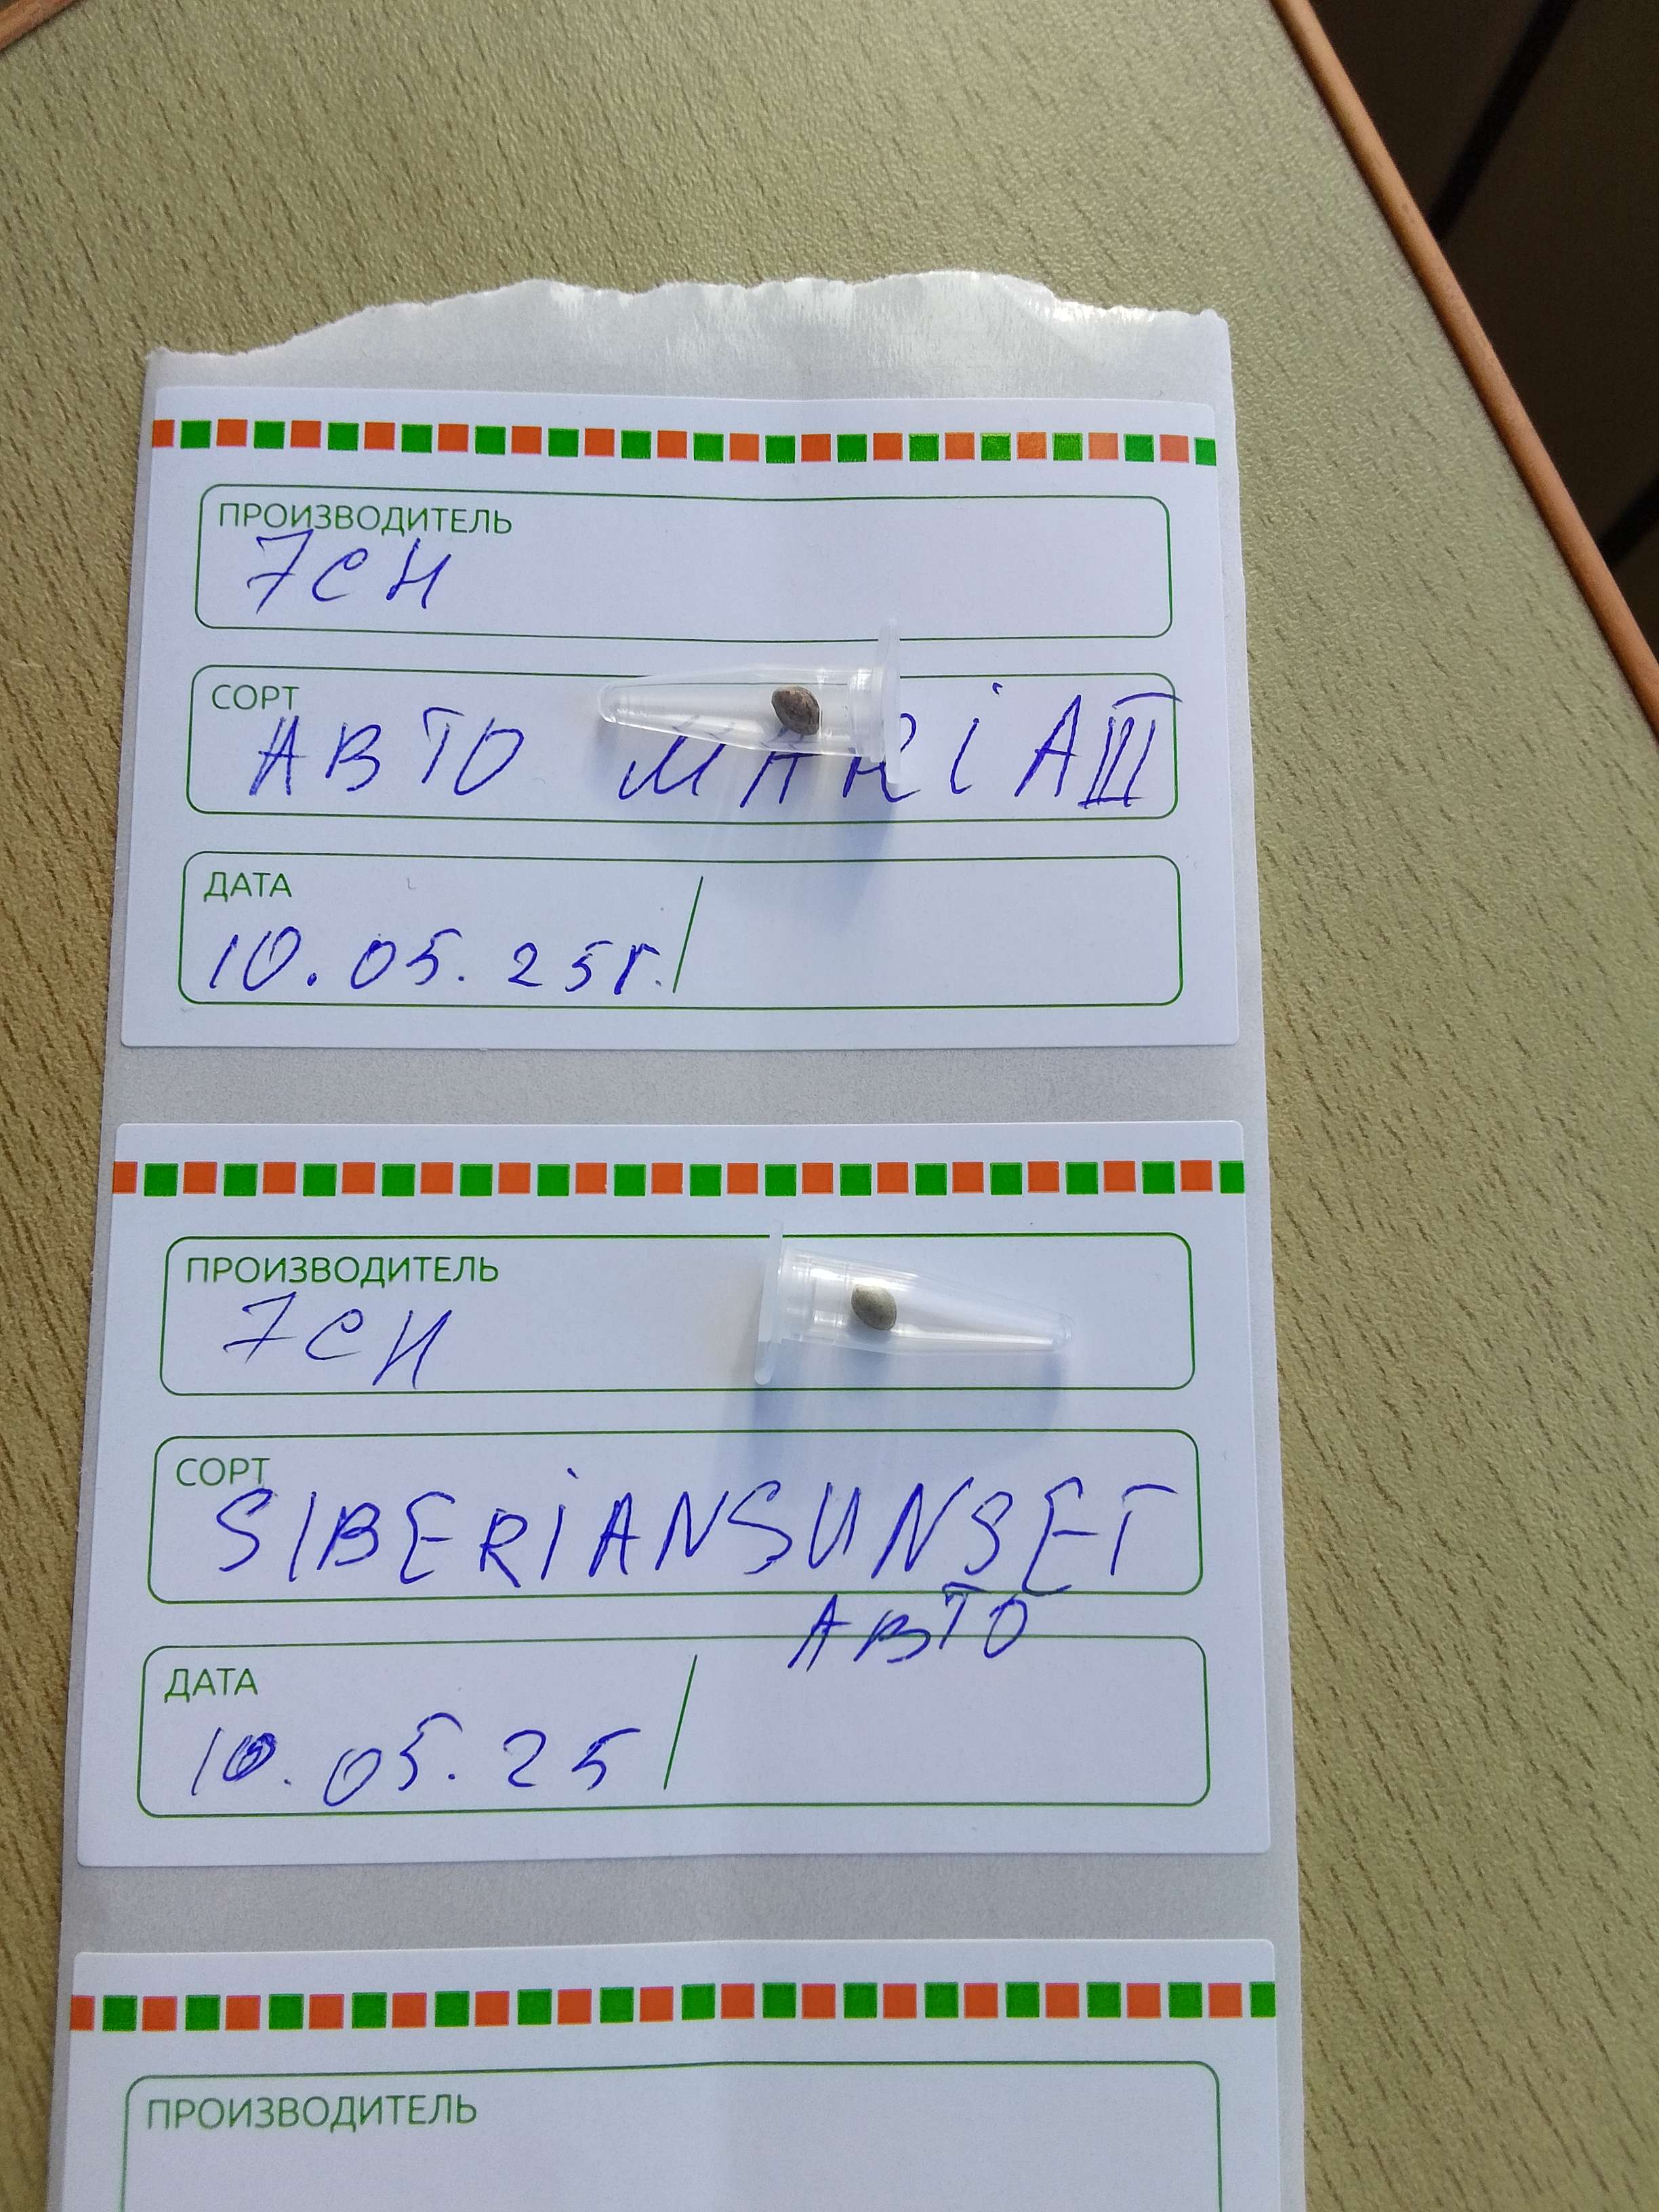 ПРОИЗВОДИТЕЛЬ
7СН
СОРТ
АВТО MARiA III
ДАТА
10.05.25г.
ПРОИЗВОДИТЕЛЬ
7СН
СОРТ
SIBERiANSUNSET
АВТО
ДАТА
10.05.25
ПРОИЗВОДИТЕЛЬ